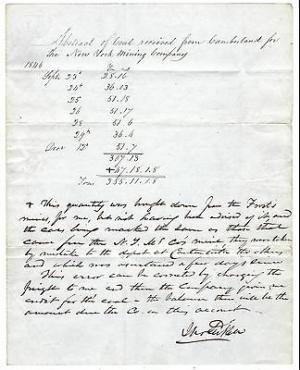 Abstract of Coal received from Cumberland for
the New York Mining Company
1846
Sept 23d 28.16
24th 36.13
25 51.18
26 51.17
28 51.6
29th 36.4
51.7
307.13
+ 47.18.1.8
Tons
+ This quantity was brought down from the Frosts
mines, for me, but not having been advised of it, and
the cars being marked the same as those that
came from the N.Y. Mg Co's mine they were taken
by mistake to the depot at
and which was ascertained a few days since.
This error can be corrected by charging the
freight to me and then the Company giving me
credit for the coal & the balance then will be the
amount due the Co. on this account